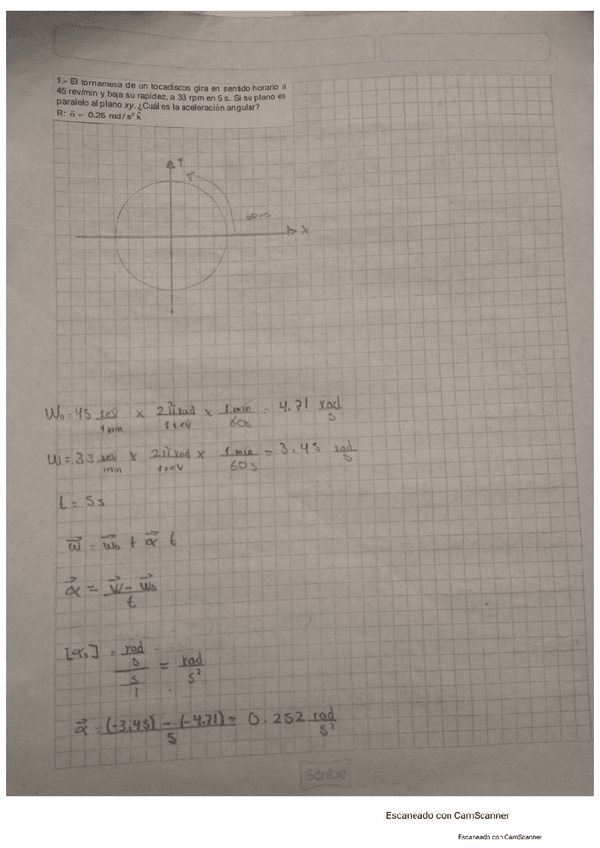 1.- El tornamesa de un tocadiscos gira en sentido horario a
45 rev/min y baja su rapidez, a 33 rpm en 5 s. Si su plano es
paralelo al plano xy. ¿Cuál es la aceleración angular?
R: α⃗ = 0.26 rad/s² k̂
Y
X
W₀ = 45 rev/1min × 2π rad/1rev × 1min/60s = 4.71 rad/s
W = 33 rev/min × 2π rad/1rev × 1min/60s = 3.45 rad/s
t = 5s
w⃗ = w⃗₀ + α⃗ t
α⃗ = w⃗ - w⃗₀ / t
= rad/s / s/1 = rad/s²
α⃗ = (-3.45) - (-4.71) / 5 = 0.252 rad/s²
Scribe
Escaneado con CamScanner
Escaneado con CamScanner